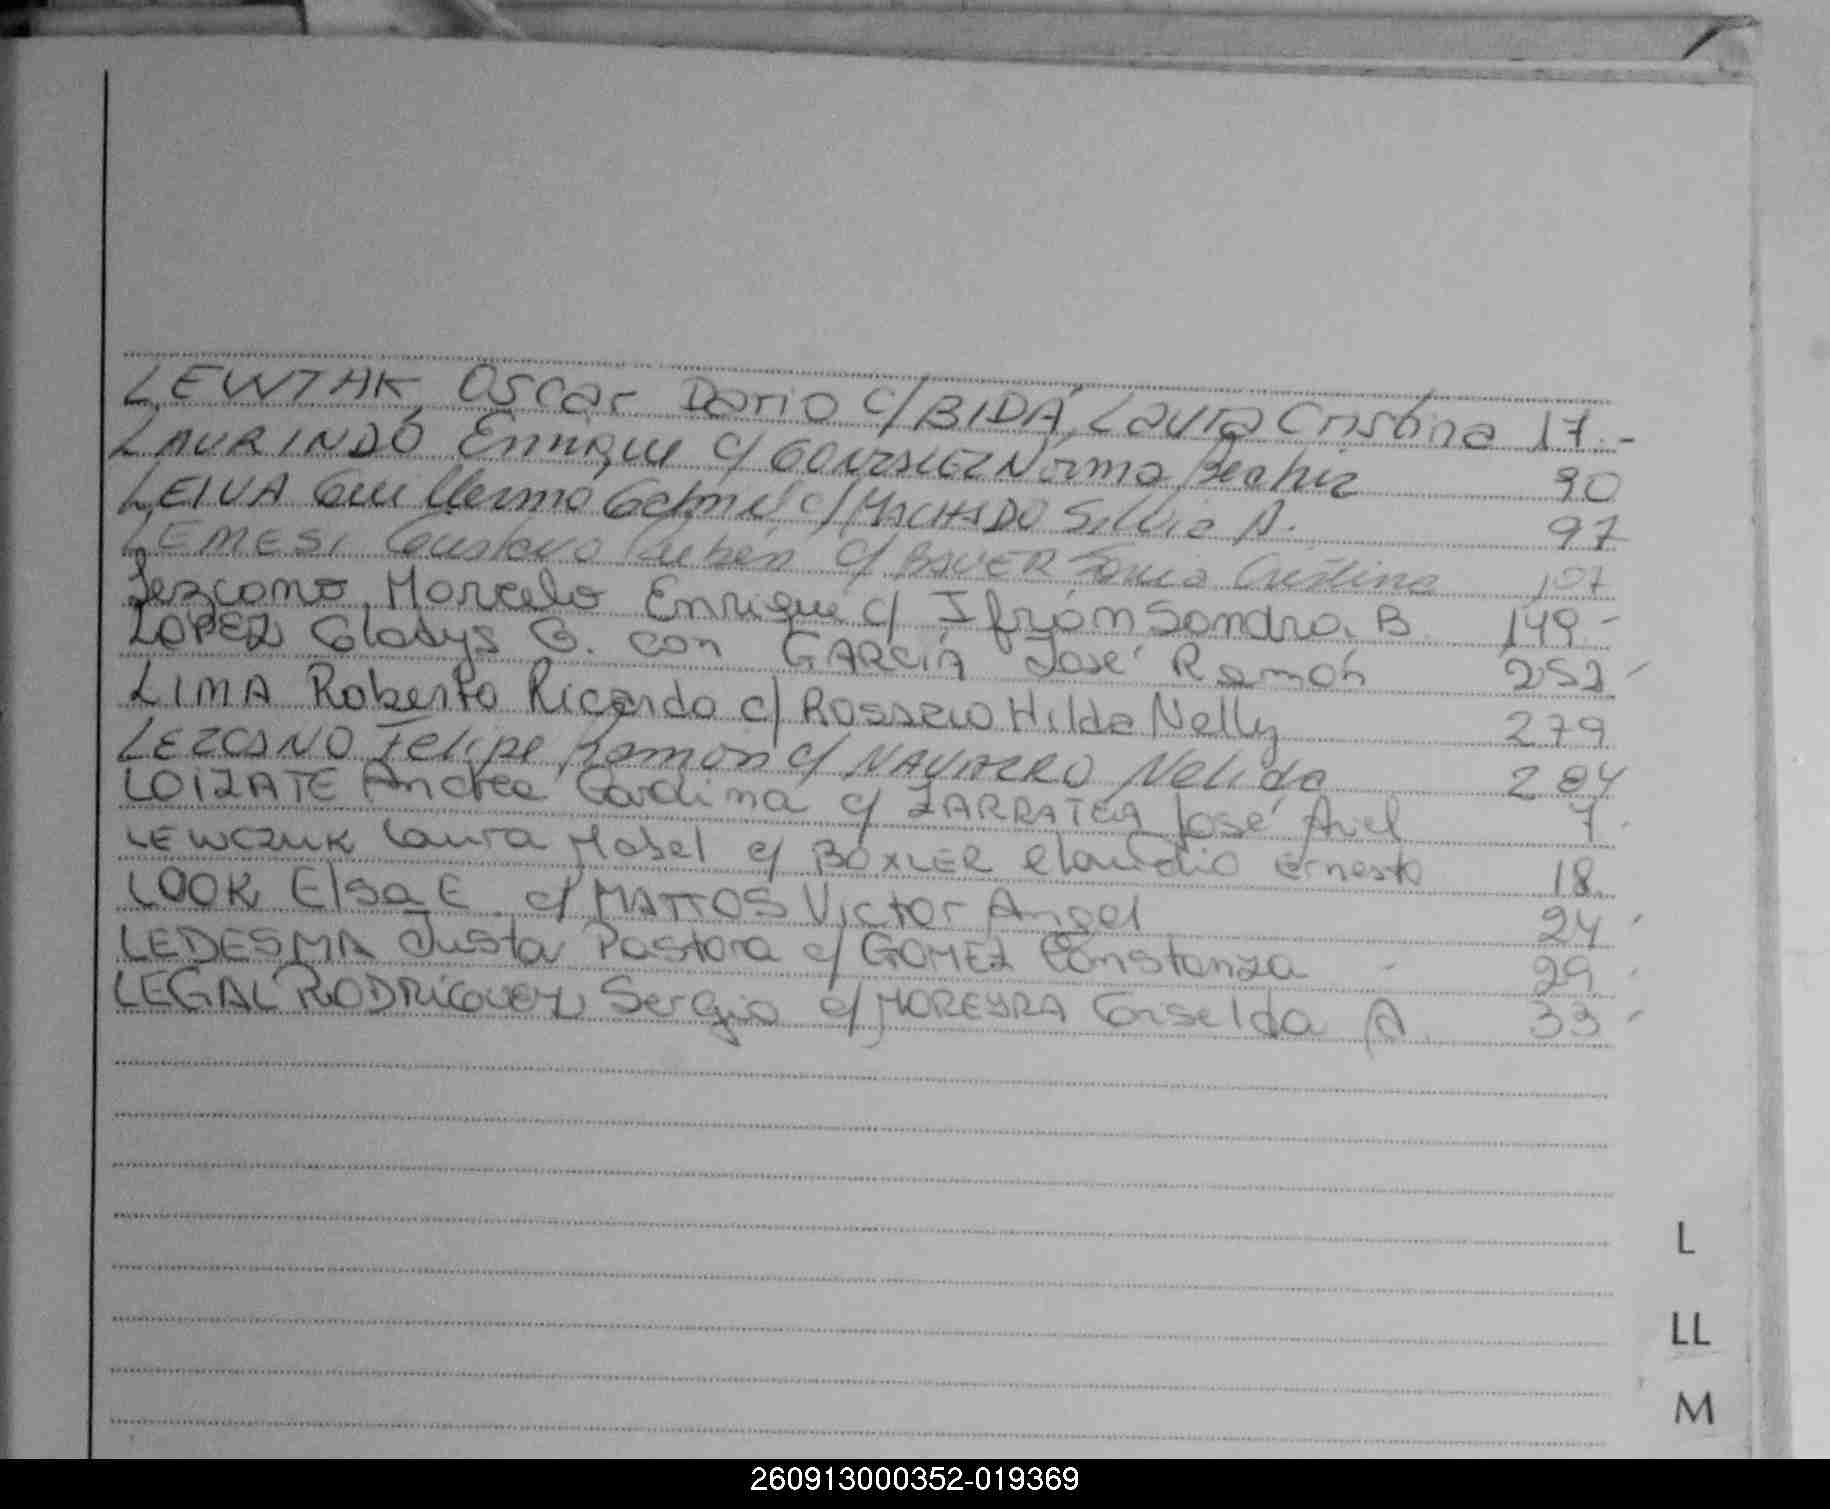 LEWTAK, Oscar Dario c/ BIDÁ, Laura Cristina 17.-
LAURINDO Enrique c/ GONZALEZ Norma Beatriz 90
LEIVA Guillermo Gabriel c/ MACHADO Silvia A. 97
LEMESI Gustavo Ruben c/ BAUER Sonia Cristina 107
Lezcano, Marcelo Enrique c/ Ifrán Sandra B. 149-
LOPEZ Gladys G. con GARCIA José Ramón 252-
LIMA Roberto Ricardo c/ Hilda Nelly 279
LEZCANO Felipe Ramon c/ NAVARRO Nelida 284
LOIZATE Andrea Carolina c/ ZARRATEA José Ariel 7.
LEWCZUK Laura Mabel c/ BOXLER Claudio Ernesto 18.
LOOK Elsa E. c/ MATTOS Victor Angel 24
LEDESMA Justa Pastora c/ GOMEZ Constanza - 29
LEGAL RODRIGUEZ Sergio c/ MOREYRA Griselda A. 33-
L
LL
M
260913000352-019369